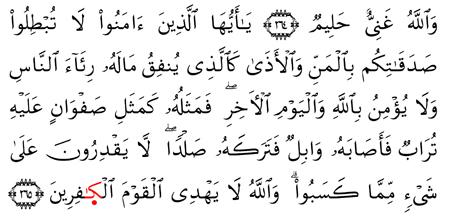 وَٱللَّهُ غَنِيٌّ حَلِيمٌ ٢٦٤ يَـٰٓأَيُّهَا ٱلَّذِينَ ءَامَنُوا۟ لَا تُبْطِلُوا۟
صَدَقَـٰتِكُم بِٱلْمَنِّ وَٱلْأَذَىٰ كَٱلَّذِى يُنفِقُ مَالَهُۥ رِئَآءَ ٱلنَّاسِ
وَلَا يُؤْمِنُ بِٱللَّهِ وَٱلْيَوْمِ ٱلْـَٔاخِرِ ۖ فَمَثَلُهُۥ كَمَثَلِ صَفْوَانٍ عَلَيْهِ
تُرَابٌ فَأَصَابَهُۥ وَابِلٌ فَتَرَكَهُۥ صَلْدًا ۖ لَّا يَقْدِرُونَ عَلَىٰ
شَىْءٍ مِّمَّا كَسَبُوا۟ ۗ وَٱللَّهُ لَا يَهْدِى ٱلْقَوْمَ ٱلْكَـٰفِرِينَ ٢٦٥